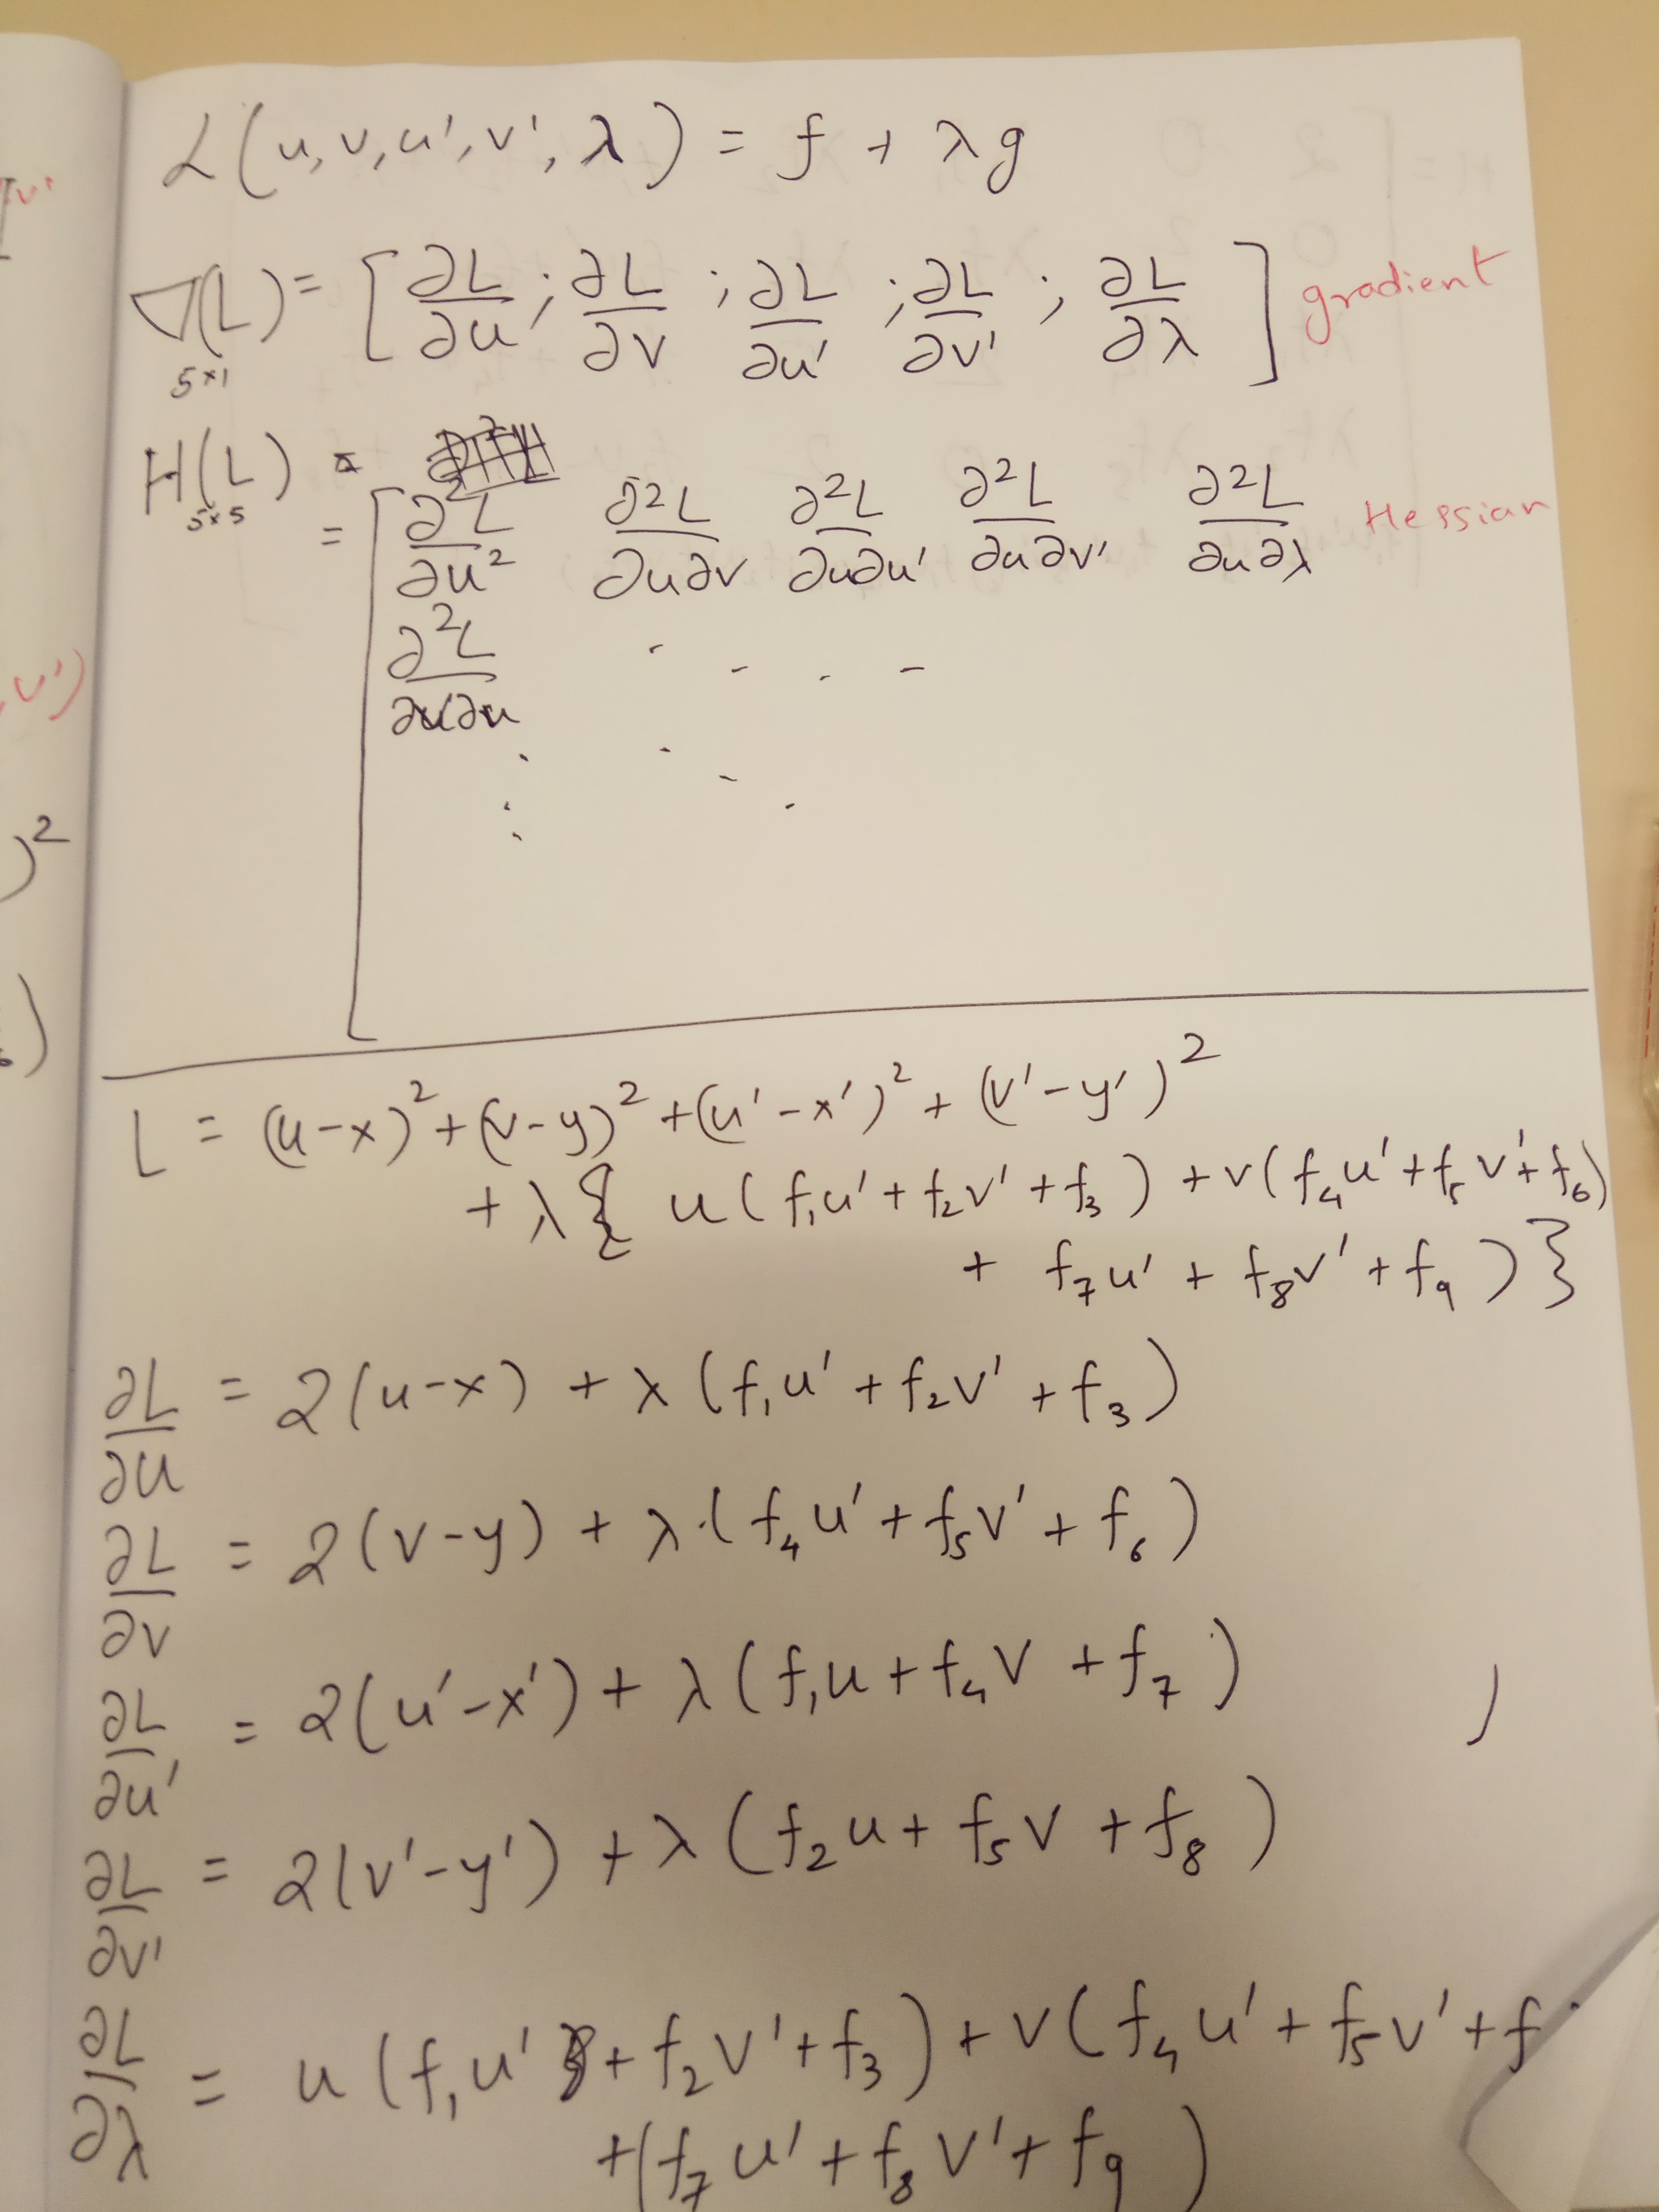 L(u, v, u', v', λ) = f + λg
∇(L) = [ ∂L/∂u ; ∂L/∂v ; ∂L/∂u' ; ∂L/∂v' ; ∂L/∂λ ] gradient
5×1
H(L) =
5×5
= [ ∂²L/∂u² ∂²L/∂u∂v ∂²L/∂u∂u' ∂²L/∂u∂v' ∂²L/∂u∂λ Hessian
∂²L
L = (u-x)² + (v-y)² + (u'-x')² + (v'-y')²
+ λ{ u( f₁u' + f₂v' + f₃ ) + v( f₄u' + f₅v' + f₆)
+ f₇u' + f₈v' + f₉ ) }
∂L/∂u = 2(u-x) + λ (f₁u' + f₂v' + f₃)
∂L/∂v = 2(v-y) + λ·( f₄u' + f₅v' + f₆)
∂L/∂u' = 2(u'-x') + λ (f₁u + f₄v + f₇)
∂L/∂v' = 2(v'-y') + λ (f₂u + f₅v + f₈)
∂L/∂λ = u (f₁u' + f₂v' + f₃) + v( f₄u' + f₅v' + f
+(f₇u' + f₈v' + f₉)
v'
, v')
)²
)